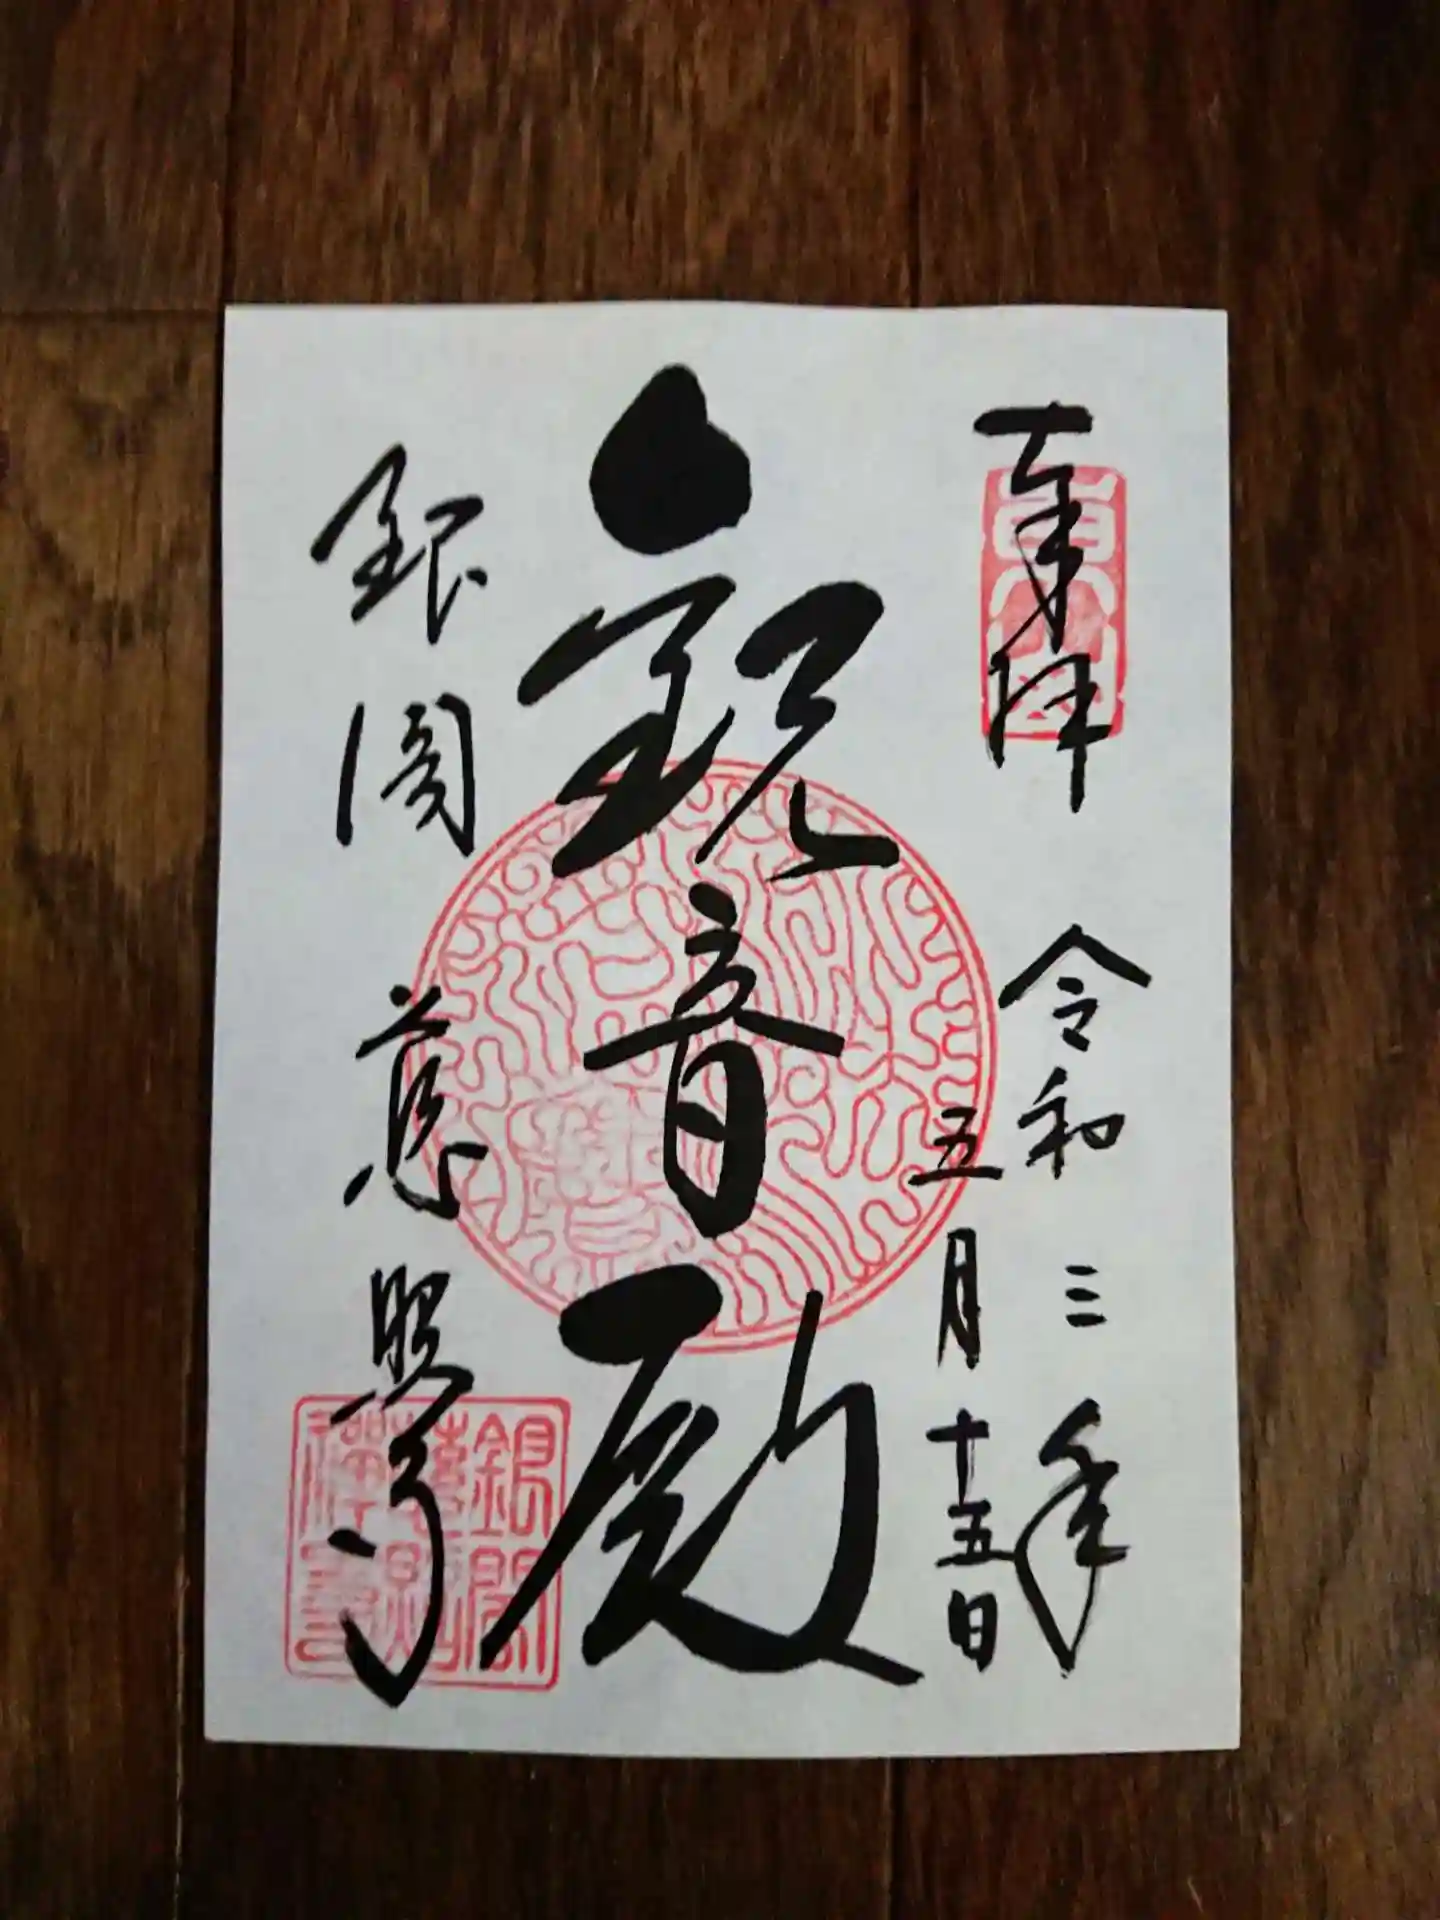 奉拝
令和三年
五月十五日
観音殿
銀閣 慈照寺
銀閣
慈照
禅寺